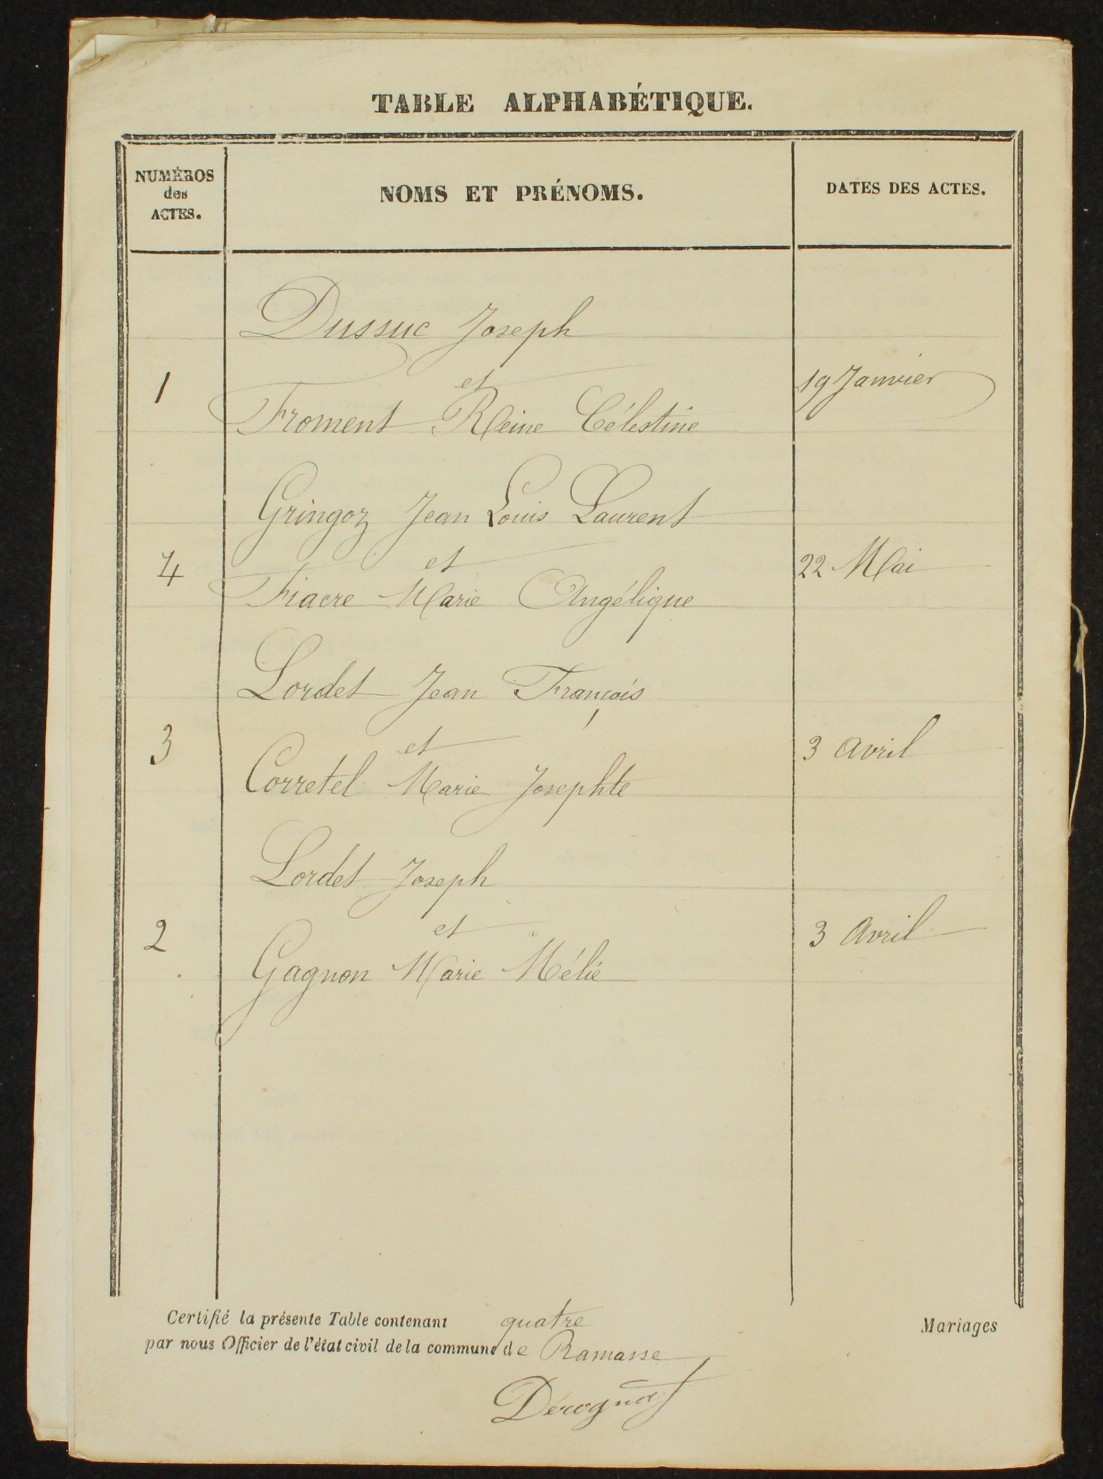 TABLE ALPHABÉTIQUE.
NUMÉROS
des
ACTES.
NOMS ET PRÉNOMS.
DATES DES ACTES.
Dussuc Joseph
1 et 19 Janvier
Froment Reine Célestine
Gringoz Jean Louis Laurent
4 et 22 Mai
Fiacre Marie Angélique
Lordet Jean François
3 et 3 Avril
Corretel Marie Josephte
Lordet Joseph
2 et 3 Avril
Gagnon Marie Mélie
Certifié la présente Table contenant quatre Mariages
par nous Officier de l'état civil de la commune de Ramasse